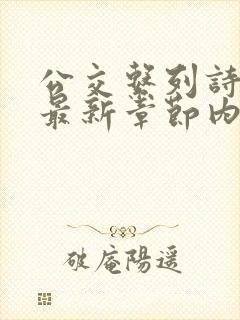 公交繫列詩
最新章節內
破庵陽遥